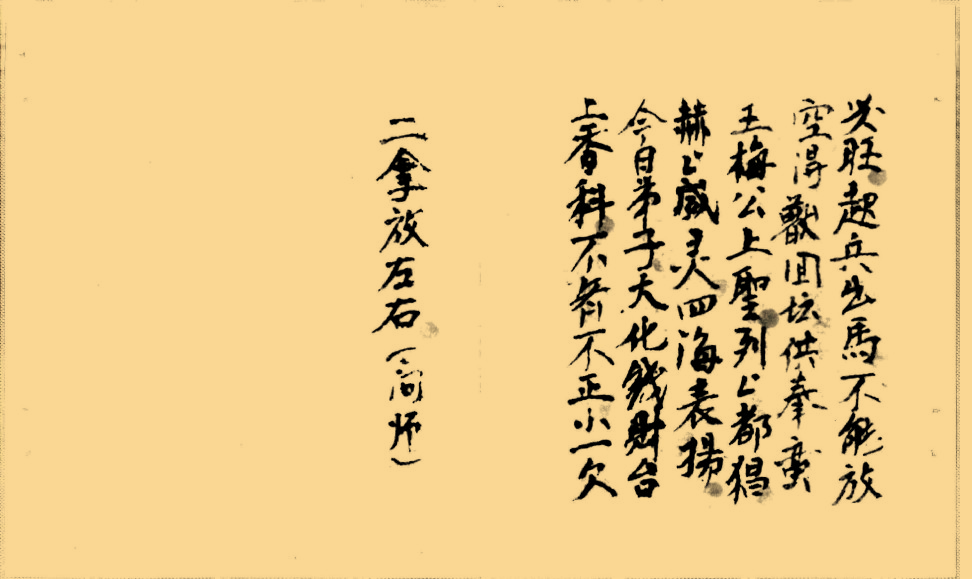 旺起兵出馬不能放
空得獸回坛供奉蛮
王梅公上聖列上都猖
赫上威灵四海表揚
今日弟子大化錢財台
上香科不齐不正小一欠
二拿放左右（高师）